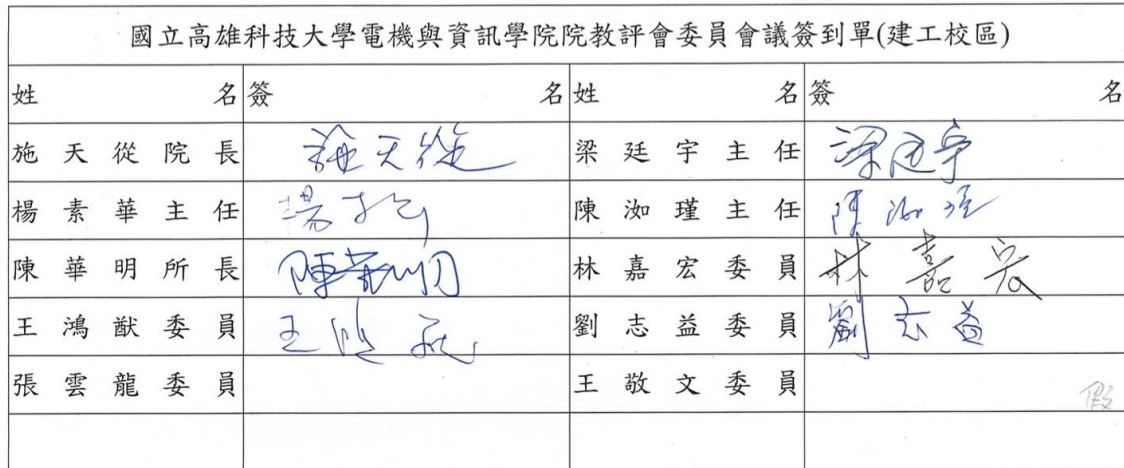 國立高雄科技大學電機與資訊學院院教評會委員會議簽到單(建工校區)
姓 名 簽 名 姓 名 簽 名
施天從院長 施天從 梁廷宇主任 梁廷宇
楊素華主任 楊 陳洳瑾主任 陳洳瑾
陳華明所長 陳華明 林嘉宏委員 林嘉宏
王鴻猷委員 王鴻猷 劉志益委員 劉志益
張雲龍委員 王敬文委員 假